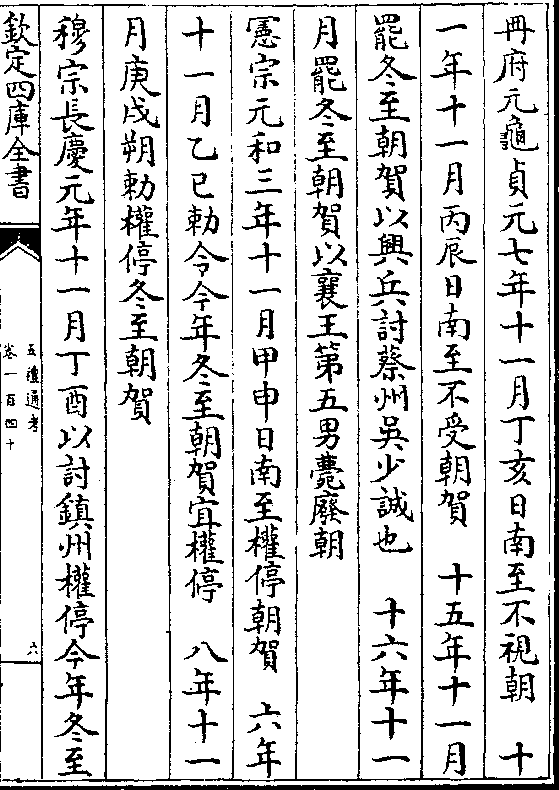 冊府元龜貞元七年十一月丁亥日南至不視朝　十
一年十一月丙辰日南至不受朝賀　十五年十一月
罷冬至朝賀以興兵討蔡州吳少誠也　十六年十一
月罷冬至朝賀以襄王第五男薨廢朝
憲宗元和三年十一月甲申日南至權停朝賀　六年
十一月乙巳勅令今年冬至朝賀宜權停　八年十一
月庚戌朔勅權停冬至朝賀
穆宗長慶元年十一月丁酉以討鎮州權停今年冬至
欽定四庫全書
五禮通考
卷一百四十
六